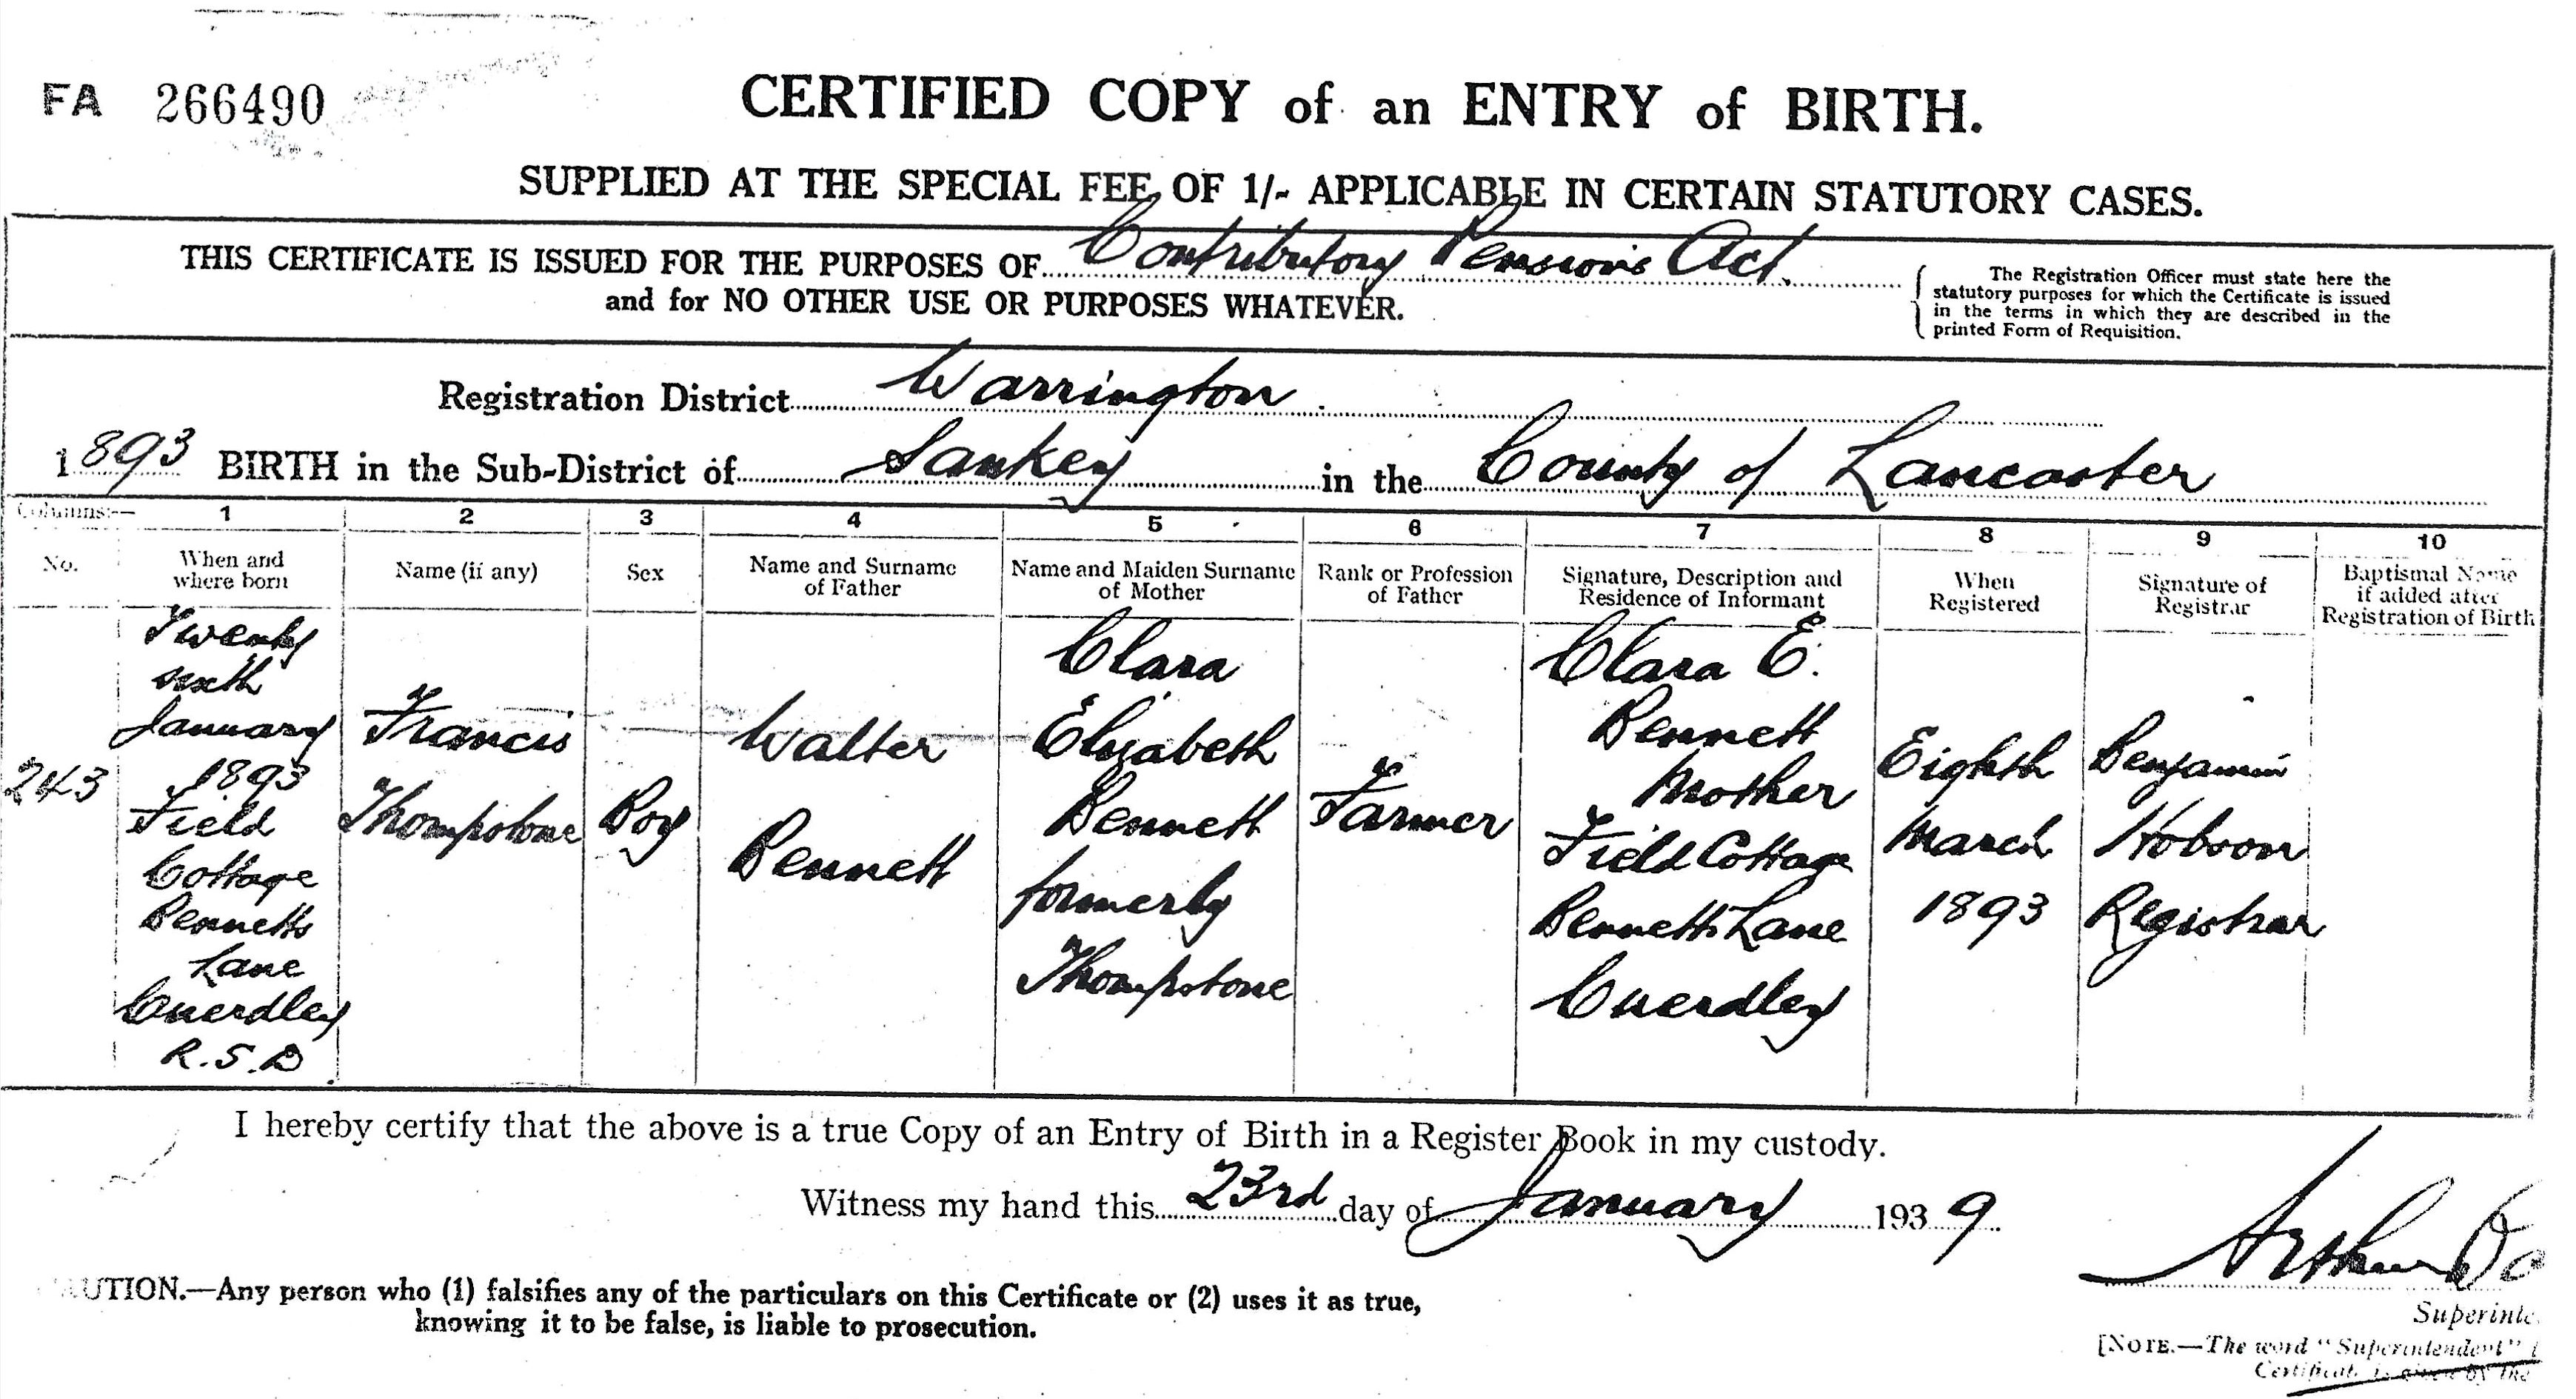 FA 266490
CERTIFIED COPY of an ENTRY of BIRTH.
SUPPLIED AT THE SPECIAL FEE OF 1/- APPLICABLE IN CERTAIN STATUTORY CASES.
THIS CERTIFICATE IS ISSUED FOR THE PURPOSES OF Contributory Pensions Act.
and for NO OTHER USE OR PURPOSES WHATEVER.
The Registration Officer must state here the
statutory purposes for which the Certificate is issued
in the terms in which they are described in the
printed Form of Requisition.
Registration District Warrington
1893 BIRTH in the Sub-District of Sankey in the County of Lancaster
Columns:— 1 2 3 4 5 6 7 8 9 10
No.
When and
where born
Name (if any)
Sex
Name and Surname
of Father
Name and Maiden Surname
of Mother
Rank or Profession
of Father
Signature, Description and
Residence of Informant
When
Registered
Signature of
Registrar
Baptismal Name
if added after
Registration of Birth
243
Twenty
sixth
January
1893
Field
Cottage
Bennetts
Lane
Cuerdley
R.S.D
Francis
Thompstone
Boy
Walter
Bennett
Clara
Elizabeth
Bennett
formerly
Thompstone
Farmer
Clara E.
Bennett
Mother
Field Cottage
Bennetts Lane
Cuerdley
Eighth
March
1893
Benjamin
Hobson
Registrar
I hereby certify that the above is a true Copy of an Entry of Birth in a Register Book in my custody.
Witness my hand this 23rd day of January 1939.
Arthur
UTION.—Any person who (1) falsifies any of the particulars on this Certificate or (2) uses it as true,
knowing it to be false, is liable to prosecution.
Superinte
[NOTE.—The word "Superintendent"
Certificate is given by the